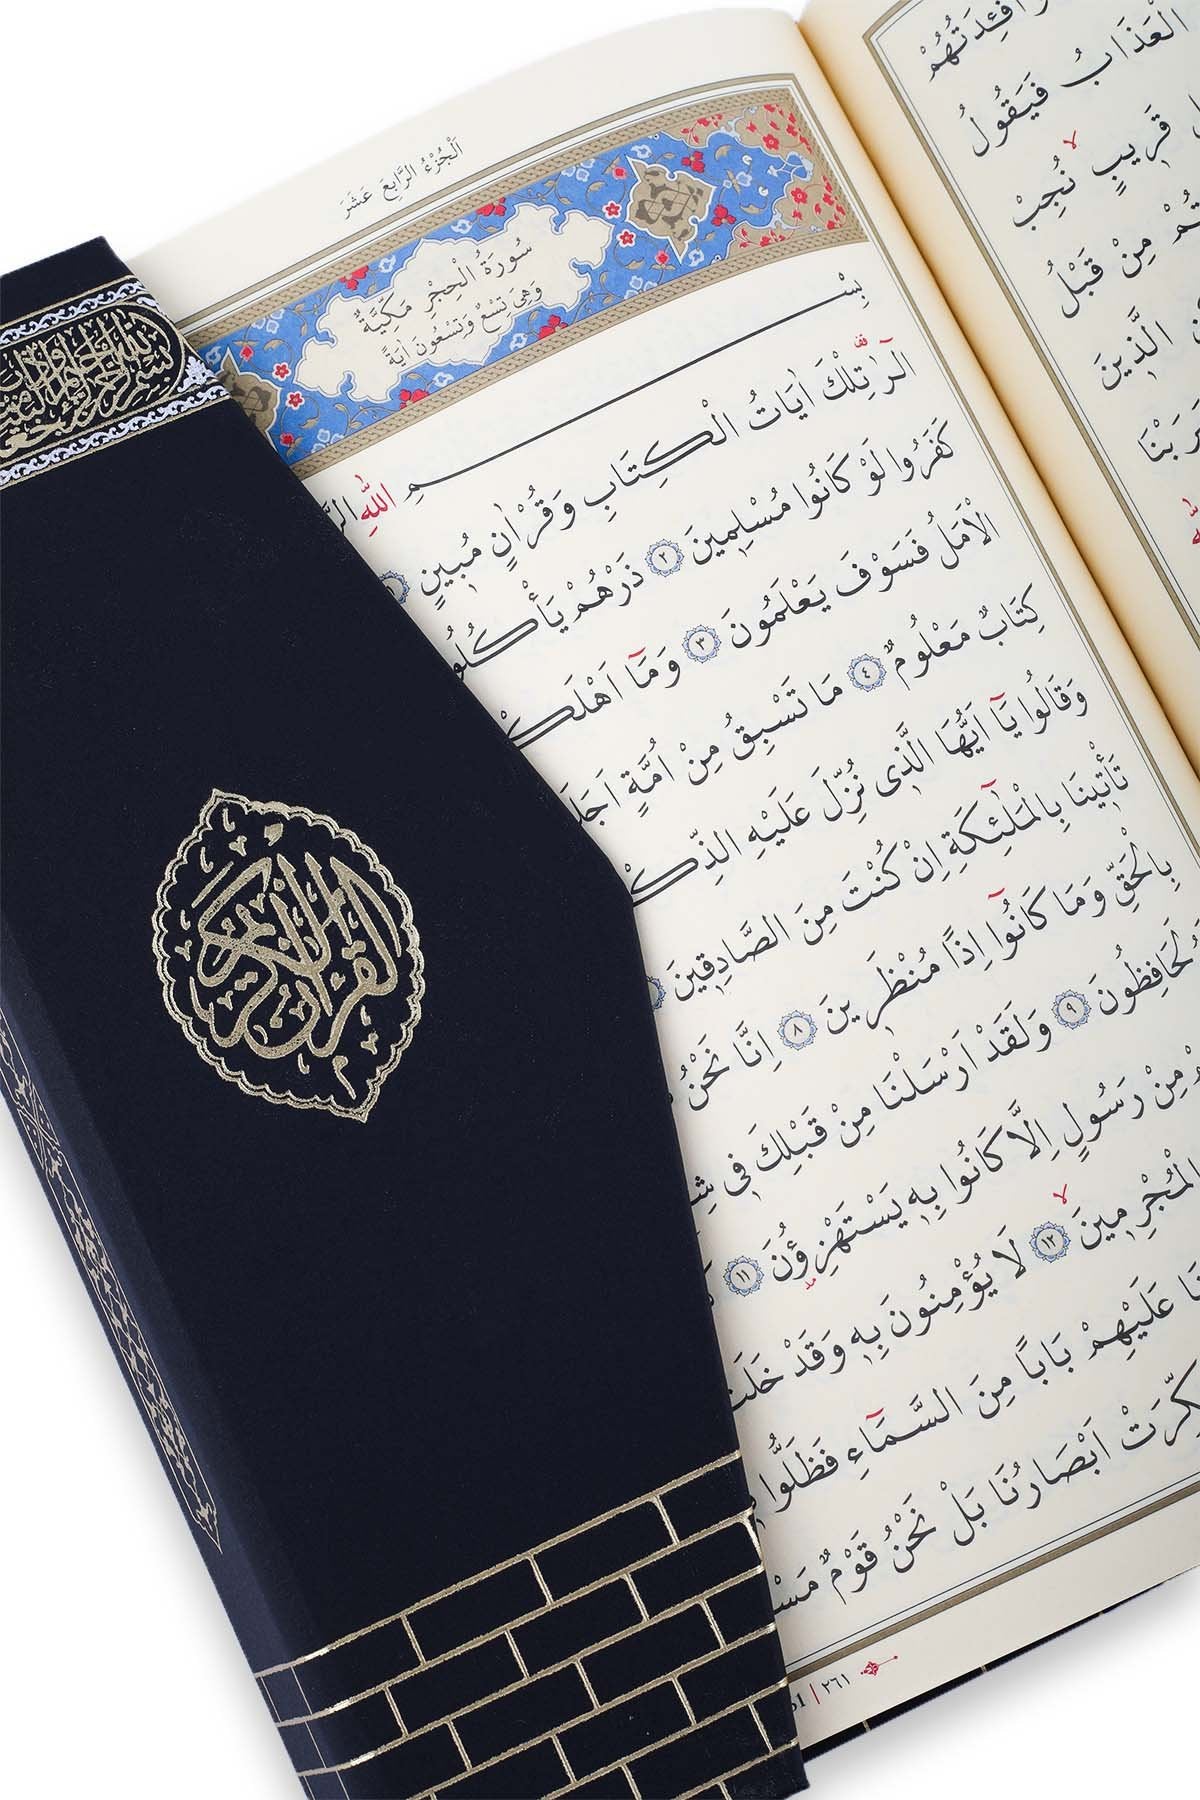 اَلْجُزْءُ الرَّابِعَ عَشَرَ
سُورَةُ الْحِجْرِ مَكِّيَّةٌ
وَهِيَ تِسْعٌ وَتِسْعُونَ اٰيَةً
بِسْمِ اللّٰهِ
الٓرٰ تِلْكَ اٰيَاتُ الْكِتَابِ وَقُرْاٰنٍ مُبٖينٍ
كَفَرُوا لَوْ كَانُوا مُسْلِمٖينَ ﴿٢﴾ ذَرْهُمْ يَأْكُلُوا
الْاَمَلُ فَسَوْفَ يَعْلَمُونَ ﴿٣﴾ وَمَٓا اَهْلَكْ
كِتَابٌ مَعْلُومٌ ﴿٤﴾ مَا تَسْبِقُ مِنْ اُمَّةٍ اَجَلَ
وَقَالُوا يَٓا اَيُّهَا الَّذٖى نُزِّلَ عَلَيْهِ الذِّكْ
تَأْتٖينَا بِالْمَلٰٓئِكَةِ اِنْ كُنْتَ مِنَ الصَّادِقٖينَ
بِالْحَقِّ وَمَا كَانُٓوا اِذًا مُنْظَرٖينَ ﴿٨﴾ اِنَّا نَحْنُ
لَحَافِظُونَ ﴿٩﴾ وَلَقَدْ اَرْسَلْنَا مِنْ قَبْلِكَ فٖى شِ
مِنْ رَسُولٍ اِلَّا كَانُوا بِهٖ يَسْتَهْزِؤُنَ ﴿١١﴾
الْمُجْرِمٖينَ ﴿١٢﴾ لَا يُؤْمِنُونَ بِهٖ وَقَدْ خَلَتْ
عَلَيْهِمْ بَابًا مِنَ السَّمَٓاءِ فَظَلُّوا
كِّرَتْ اَبْصَارُنَا بَلْ نَحْنُ قَوْمٌ مَسْ
٢٦١
اَفْـِٔدَتُهُمْ
الْعَذَابُ فَيَقُولُ
قَرٖيبٍ نُجِبْ
مِنْ قَبْلُ
الَّذٖينَ
القرآن الكريم